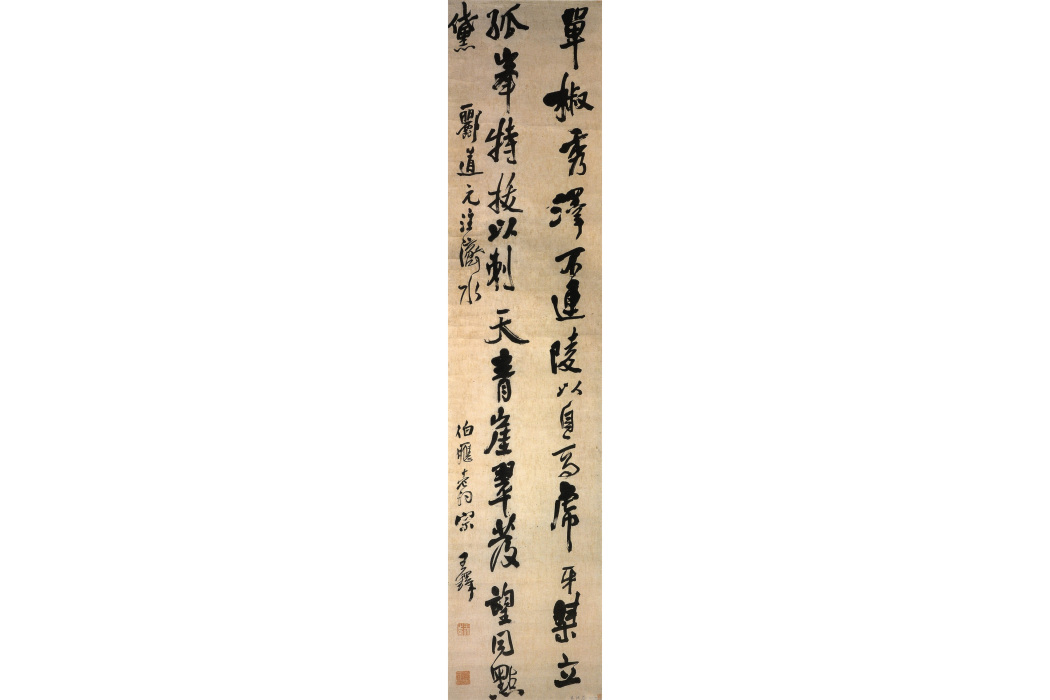 單椒秀澤不連陵以自高虎牙桀立
孤峯特拔以刺天青崖翠發望同點
黛 酈道元注濟水 伯 老翁宗 王鐸